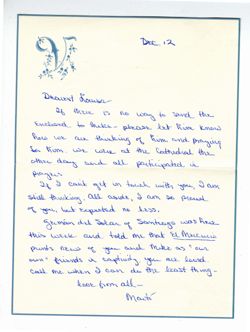 V
Dec. 12
Dearest Louise -
If there is no way to send the
enclosed to Mike - please let him know
how we are thinking of him and praying
for him. We were at the Cathedral the
other day and all participated in
prayers.
If I can't get in touch with you, I am
still thinking. All aside, I am so proud
of you, but expected no less.
Germán del Solar of Santiago was here
this week and told me that El Mercurio
prints news of you and Mike as "our
own" friends in captivity you are loved.
Call me when I can do the least thing -
Love from all -